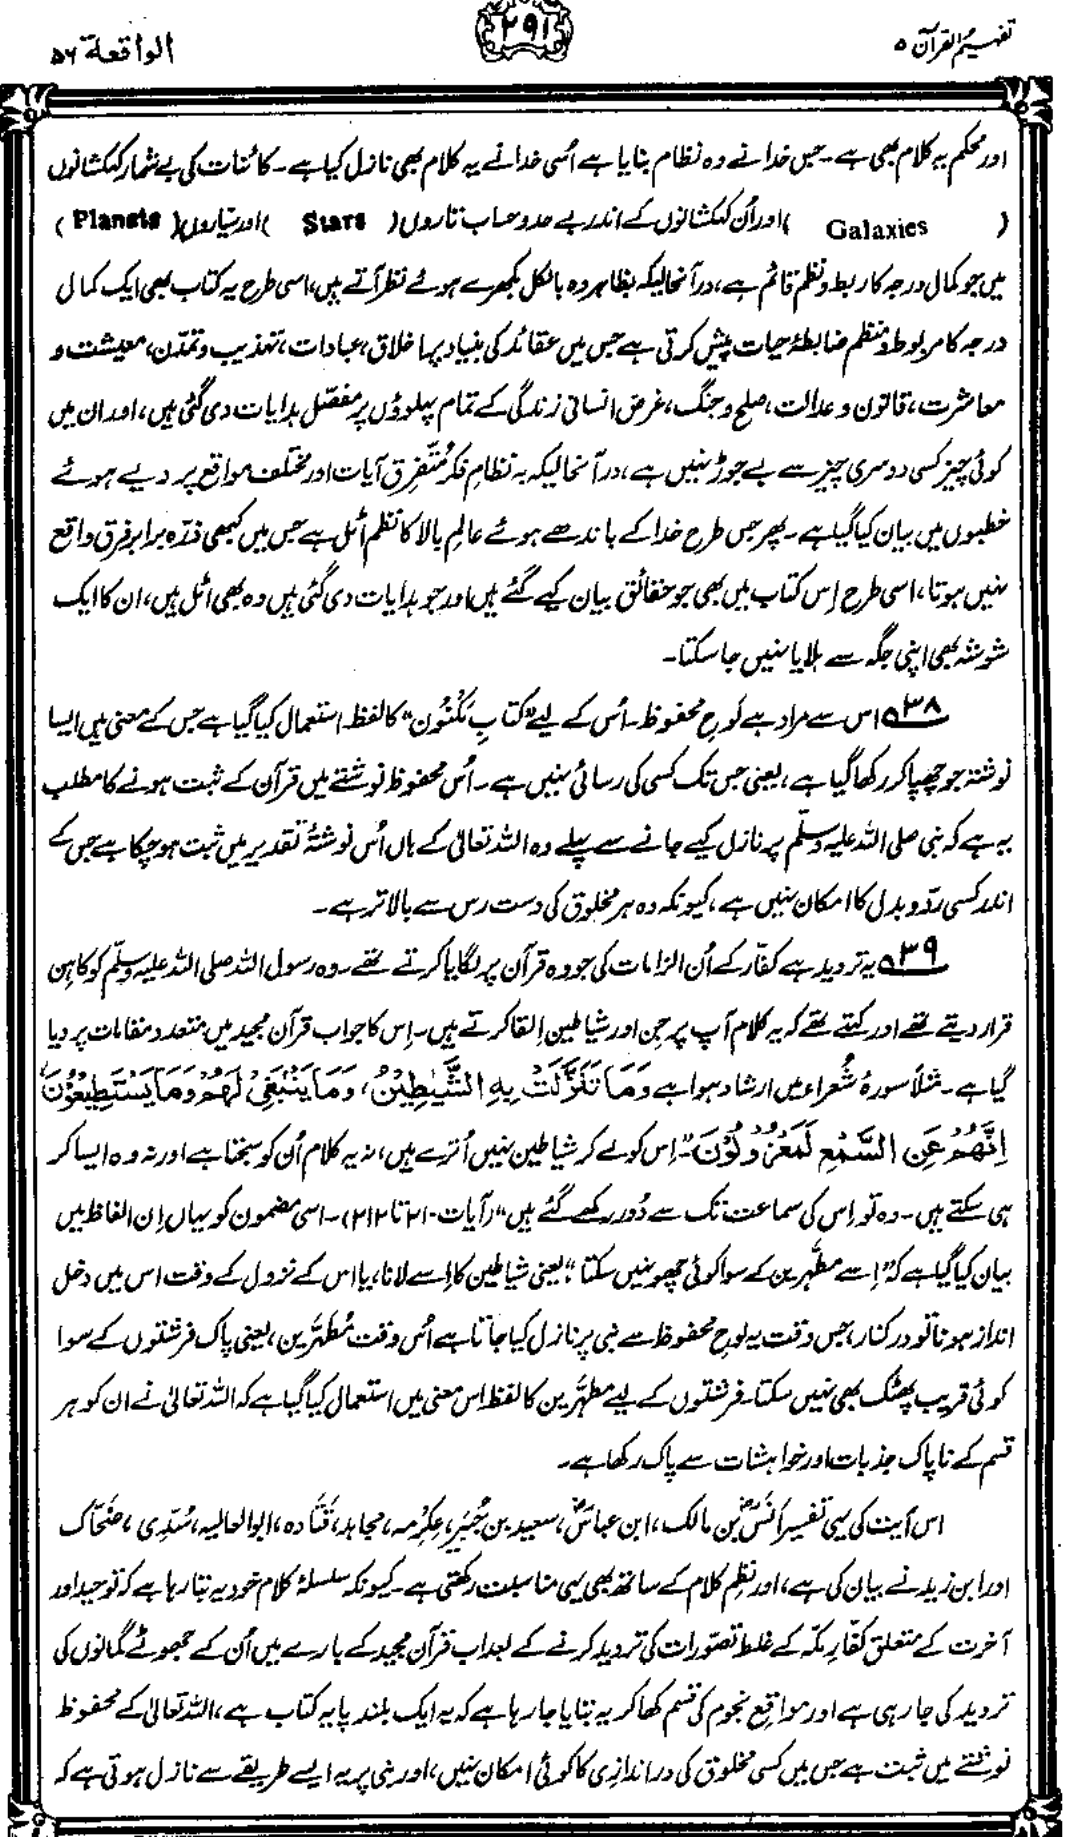 تفہیم القرآن ۵
۲۹۱
الواقعۃ ۵۶
اور محکم یہ کلام بھی ہے۔ جس خدا نے وہ نظام بنایا ہے اُسی خدا نے یہ کلام بھی نازل کیا ہے۔ کائنات کی بے شمار کہکشانوں
( Galaxies )اور اُن کہکشانوں کے اندر بے حد و حساب تاروں( Stars )اور سیّاروں( Planets )
میں جو کمال درجہ کا ربط و نظم قائم ہے، درآنحالیکہ بظاہر وہ بالکل بکھرے ہوئے نظر آتے ہیں، اسی طرح یہ کتاب بھی ایک کمال
درجہ کا مربوط و منظم ضابطۂ حیات پیش کرتی ہے جس میں عقائد کی بنیاد پر اخلاق، عبادات، تہذیب و تمدّن، معیشت و
معاشرت، قانون و عدالت، صلح و جنگ، غرض انسانی زندگی کے تمام پہلوؤں پر مفصّل ہدایات دی گئی ہیں، اور ان میں
کوئی چیز کسی دوسری چیز سے بے جوڑ نہیں ہے، درآنحالیکہ یہ نظامِ فکر مُتَفرِق آیات اور مختلف مواقع پر دیے ہوئے
خطبوں میں بیان کیا گیا ہے۔ پھر جس طرح خدا کے باندھے ہوئے عالمِ بالا کا نظم اَٹل ہے جس میں کبھی ذرّہ برابر فرق واقع
نہیں ہوتا، اسی طرح اِس کتاب میں بھی جو حقائق بیان کیے گئے ہیں اور جو ہدایات دی گئی ہیں وہ بھی اٹل ہیں، ان کا ایک
شوشہ بھی اپنی جگہ سے ہلایا نہیں جا سکتا۔
۳۸؁ اس سے مراد ہے لَوحِ محفوظ۔ اُس کے لیے "کتابِ مَّکْنُون" کا لفظ استعمال کیا گیا ہے جس کے معنی ہیں ایسا
نوشتہ جو چھپا کر رکھا گیا ہے، یعنی جس تک کسی کی رسائی نہیں ہے۔ اُس محفوظ نوشتے میں قرآن کے ثبت ہونے کا مطلب
یہ ہے کہ نبی صلی اللہ علیہ وسلّم پر نازل کیے جانے سے پہلے وہ اللہ تعالیٰ کے ہاں اُس نوشتۂ تقدیر میں ثبت ہو چکا ہے جس کے
اندر کسی ردّ و بدل کا امکان نہیں ہے، کیونکہ وہ ہر مخلوق کی دست رس سے بالاتر ہے۔
۳۹؁ یہ تردید ہے کفّار کے اُن الزامات کی جو وہ قرآن پر لگایا کرتے تھے۔ وہ رسول اللہ صلی اللہ علیہ وسلّم کو کاہن
قرار دیتے تھے اور کہتے تھے کہ یہ کلام آپ پر جِن اور شیاطین اِلقا کرتے ہیں۔ اِس کا جواب قرآن مجید میں متعدد مقامات پر دیا
گیا ہے۔ مثلاً سورۂ شُعراء میں ارشاد ہوا ہے وَمَا تَنَزَّلَتْ بِهِ الشَّيٰطِيْنُ، وَمَا يَنْبَغِيْ لَهُمْ وَمَا يَسْتَطِيْعُوْنَ،
اِنَّهُمْ عَنِ السَّمْعِ لَمَعْزُوْلُوْنَ۔ "اِس کو لے کر شیاطین نہیں اُترے ہیں، نہ یہ کلام اُن کو سجتا ہے اور نہ وہ ایسا کر
ہی سکتے ہیں۔ وہ تو اِس کی سماعت تک سے دُور رکھے گئے ہیں" (آیات۔ ۲۱۰ تا ۲۱۲)۔ اسی مضمون کو یہاں اِن الفاظ میں
بیان کیا گیا ہے کہ "اِسے مطَہَّرین کے سوا کوئی چھو نہیں سکتا"، یعنی شیاطین کا اِسے لانا، یا اس کے نزول کے وقت اس میں دخل
انداز ہونا تو درکنار، جس وقت یہ لوحِ محفوظ سے نبی پر نازل کیا جاتا ہے اُس وقت مُطَہَّرین، یعنی پاک فرشتوں کے سوا
کوئی قریب پھٹک بھی نہیں سکتا۔ فرشتوں کے لیے مطہَّرین کا لفظ اس معنی میں استعمال کیا گیا ہے کہ اللہ تعالیٰ نے ان کو ہر
قسم کے ناپاک جذبات اور خواہشات سے پاک رکھا ہے۔
اس آیت کی یہی تفسیر اَنَسؓ بن مالک، ابن عباسؓ، سعید بن جُبَیر، عِکْرِمہ، مجاہد، قَتَادہ، ابوالعالیہ، سُدّی، ضَحّاک
اور ابن زید نے بیان کی ہے، اور نظمِ کلام کے ساتھ بھی یہی مناسبت رکھتی ہے۔ کیونکہ سلسلۂ کلام خود یہ بتا رہا ہے کہ توحید اور
آخرت کے متعلق کفّارِ مکّہ کے غلط تصوّرات کی تردید کرنے کے بعد اب قرآن مجید کے بارے میں اُن کے جھوٹے گمانوں کی
تردید کی جا رہی ہے اور مواقعِ نجوم کی قسم کھا کر یہ بتایا جا رہا ہے کہ یہ ایک بلند پایہ کتاب ہے، اللہ تعالیٰ کے محفوظ
نوشتے میں ثبت ہے جس میں کسی مخلوق کی دراندازی کا کوئی امکان نہیں، اور نبی پر یہ ایسے طریقے سے نازل ہوتی ہے کہ